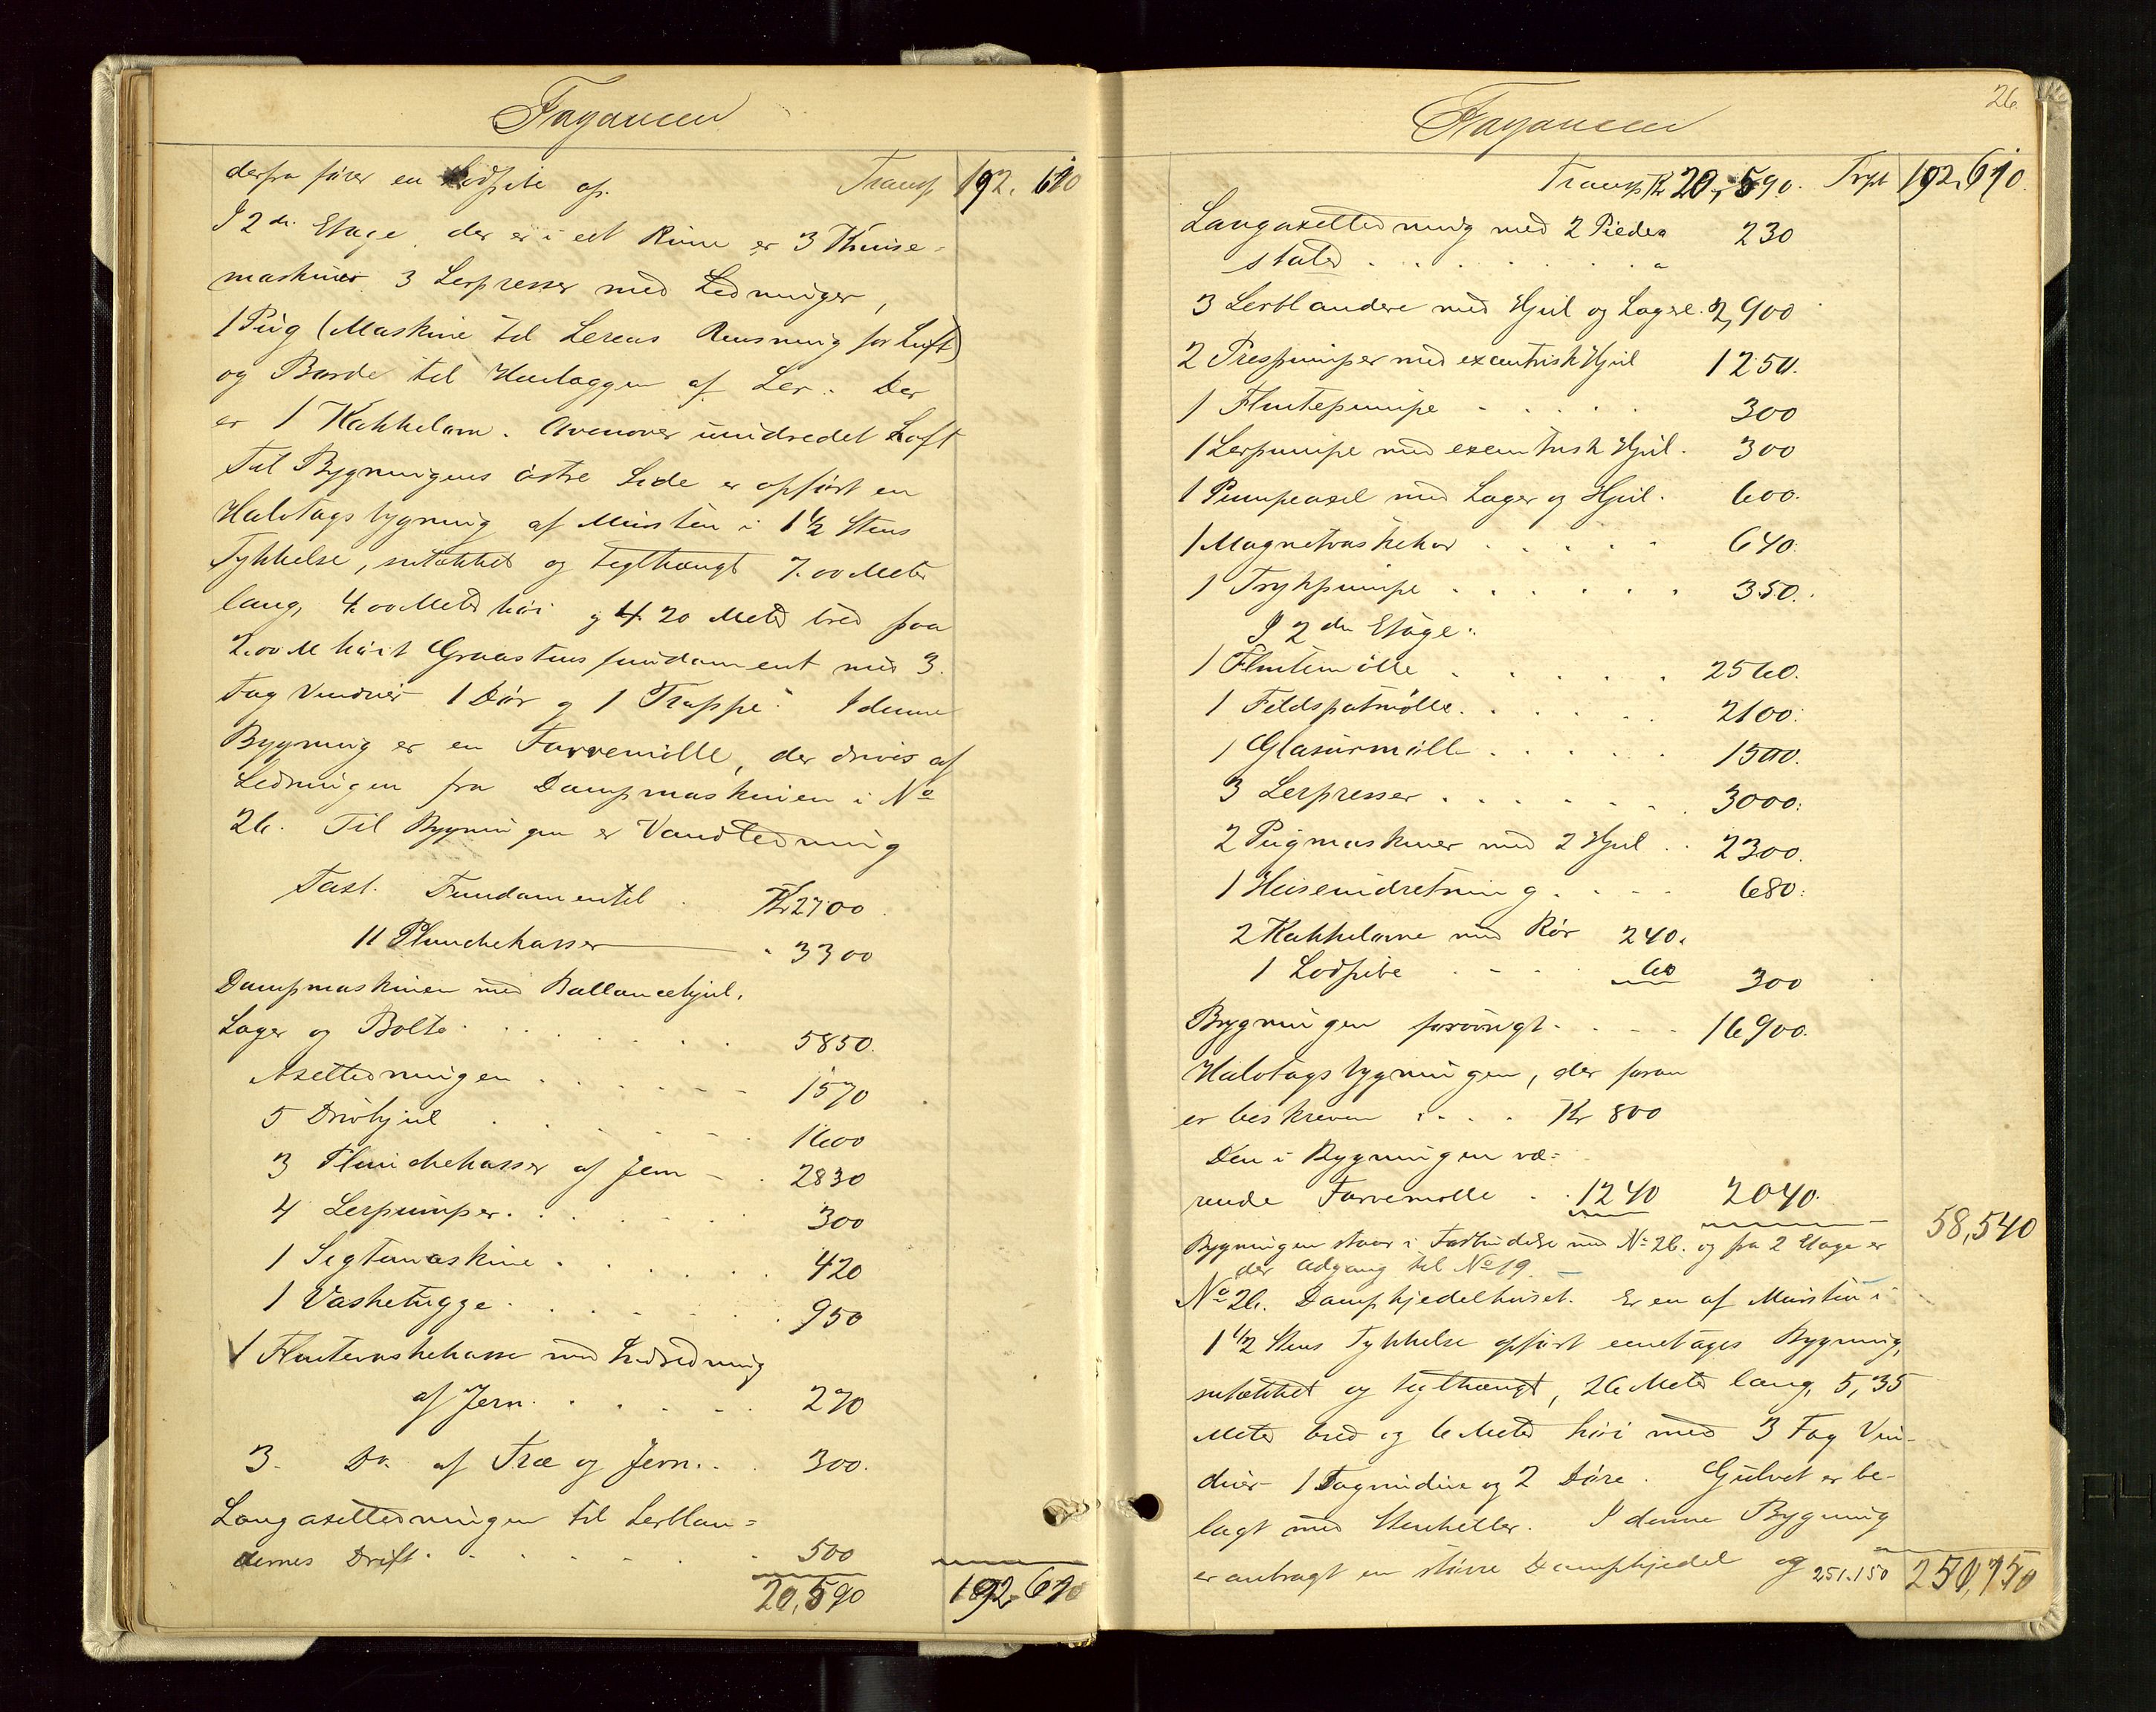 Fayancen
derfra förer en Lodpibe op. Transp 192.610
I 2den Etage, der er i eet Rum er 3 Knuse-
maskiner 3 Lerpresser med Ledninger,
1 Pug (Maskine til Lerens Rensning for Luft)
og Borde til Henlæggen af Ler. Der
er 1 Kakkelovn. Ovenover uindredet Loft
Til Bygningens östre Side er opfört en
Halvtagsbygning af Mursten i 1 1/2 Stens
Tykkelse, sutakket og teglhængt 7.00 Meter
lang, 4.00 Meter höi og 4.20 Meter bred paa
2.00 M höit Graastens fundament med 3
Fag Vinduer 1 Dör og 1 Trappe. I denne
Bygning er en Farvemölle, der drives af
Ledningen fra Dampmaskinen i No
26. Til Bygningen er Vandledning
Taxt. Fundamentet Kr 2700
11 Plunchekasser " 3300
Dampmaskinen med Ballancehjul,
Lager og Bolte 5850.
Axelledningen 1570
5 Drivhjul 1600
3 Plunchekasser af Jern 2830
4 Lerpumper 300
1 Sigtemaskine 420
1 Vasketrugge 950
1 Flintevaskekasse med Indredning
af Jern 270
3 Do. af Træ og Jern 300.
Langaxelledningen til Lerblan-
dernes Drift 500
20,590 192,610
26.
Fayancen
Transp Kr 20,590. Trpt 192,610.
Langaxelledning med 2 Piedes
taler 230
3 Lerblandere med Hjul og Lager 2,900
2 Prespumper med excentrisk Hjul 1250.
1 Flintepumpe 300
1 Lerpumpe med excentrisk Hjul. 300
1 Pumpeaxel med Lager og Hjul. 600.
1 Magnetvaskekar 640.
1 Trykpumpe 350.
I 2den Etage:
1 Flintemölle 2560.
1 Feldspatmölle 2100.
1 Glasurmölle 1500.
3 Lerpresser 3000.
2 Pugmaskiner med 2 Hjul 2300.
1 Heiseindretning 680.
2 Kakkelovne med Rör 240.
1 Lodpibe 60 300
Bygningen forövrigt 16,900.
Halvtagsbygningen, der foran
er beskreven Kr 800
Den i Bygningen væ-
rende Farvemölle 1240 2040.
58,540
Bygningen staar i Forbindelse med No 26. og fra 2 Etage er
der Adgang til No 19
No 26. Dampkjedelhuset. Er en af Mursten i
1 1/2 Stens Tykkelse opfört eenetages Bygning,
sutakket og teglhængt, 26 Meter lang, 5,35
Meter bred og 6 Meter höi med 3 Fag Vin-
duer 1 Tagvindue og 2 Döre. Gulvet er be-
lagt med Stenheller. I denne Bygning
er anbragt en större Dampkjedel og 251.150 250,750